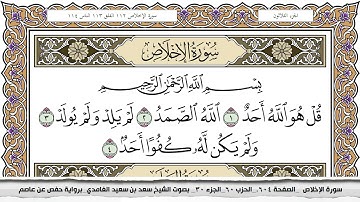 الجزء الثلاثون
سورة الإخلاص ١١٢ الفلق ١١٣ الناس ١١٤
سُورَةُ الإِخْلَاصِ
بِسْمِ اللَّهِ الرَّحْمَٰنِ الرَّحِيمِ
قُلْ هُوَ اللَّهُ أَحَدٌ ١ اللَّهُ الصَّمَدُ ٢ لَمْ يَلِدْ وَلَمْ يُولَدْ ٣
وَلَمْ يَكُن لَّهُ كُفُوًا أَحَدٌ ٤
سورة الإخلاص _ الصفحة ٦٠٤ _ الحزب ٦٠ _ الجزء ٣٠ _ بصوت الشيخ سعد بن سعيد الغامدي _ برواية حفص عن عاصم